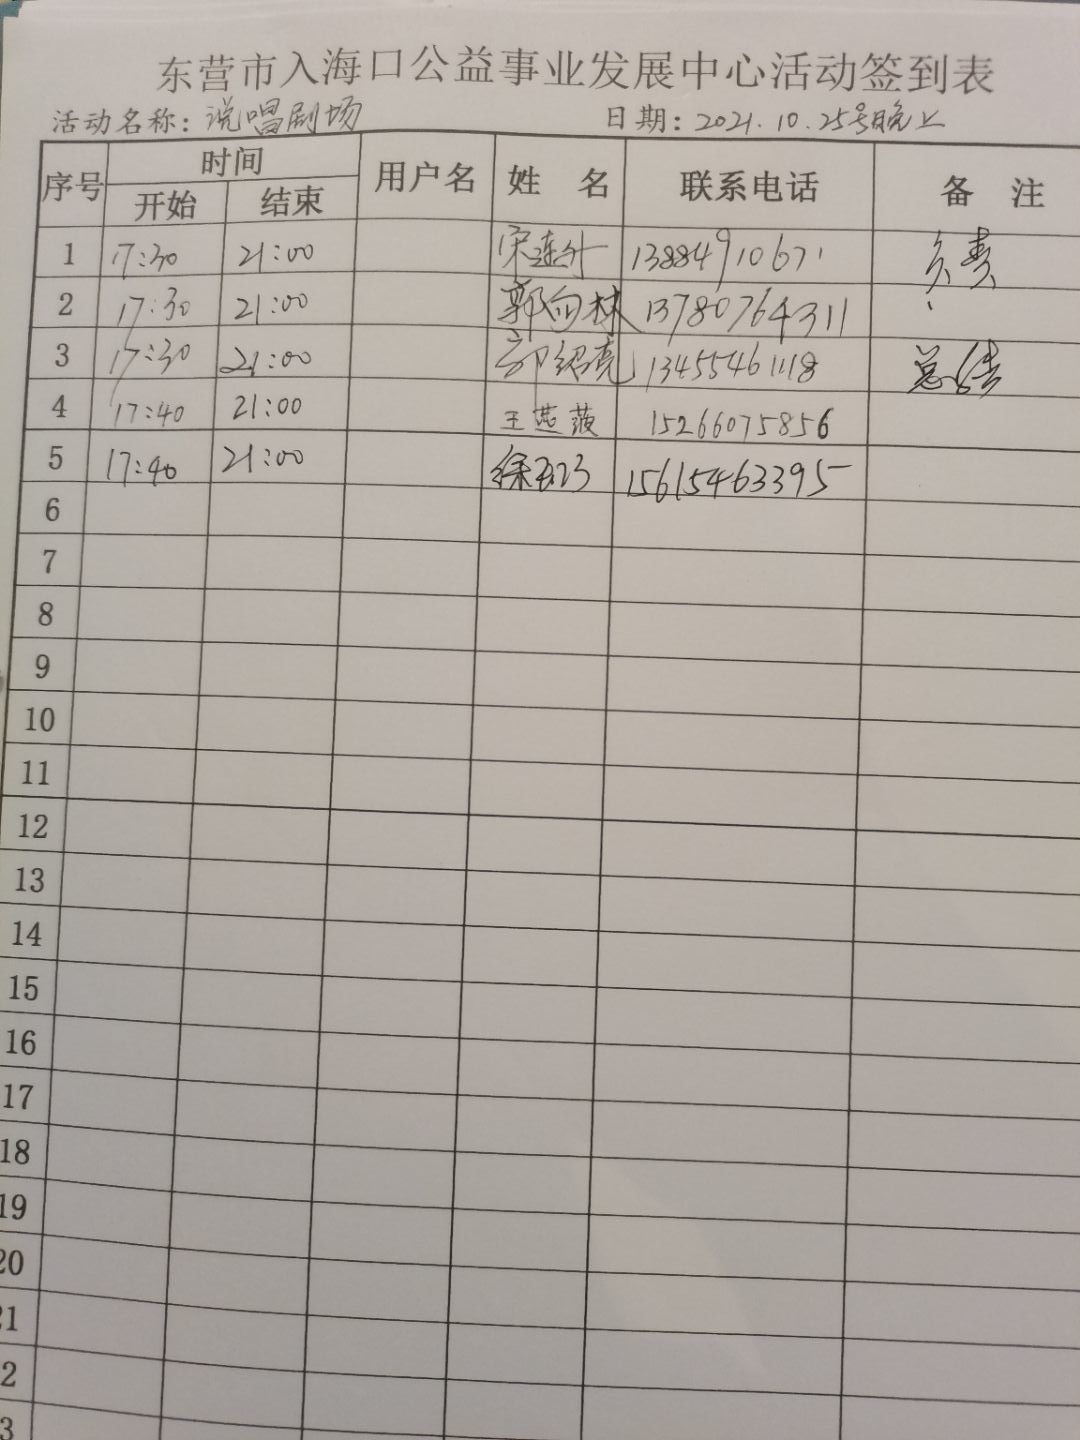 东营市入海口公益事业发展中心活动签到表
活动名称：说唱剧场 日期：2021.10.25号晚上
序号 时间 用户名 姓 名 联系电话 备 注
开始 结束
1 17:30 21:00 宋连升 13884910671 负责
2 17:30 21:00 郭向林 13780764311
3 17:30 21:00 郭绍亮 13455461118 总结
4 17:40 21:00 王燕菠 15266075856
5 17:40 21:00 徐 15615463395
6
7
8
9
10
11
12
13
14
15
16
17
18
19
20
21
2
3